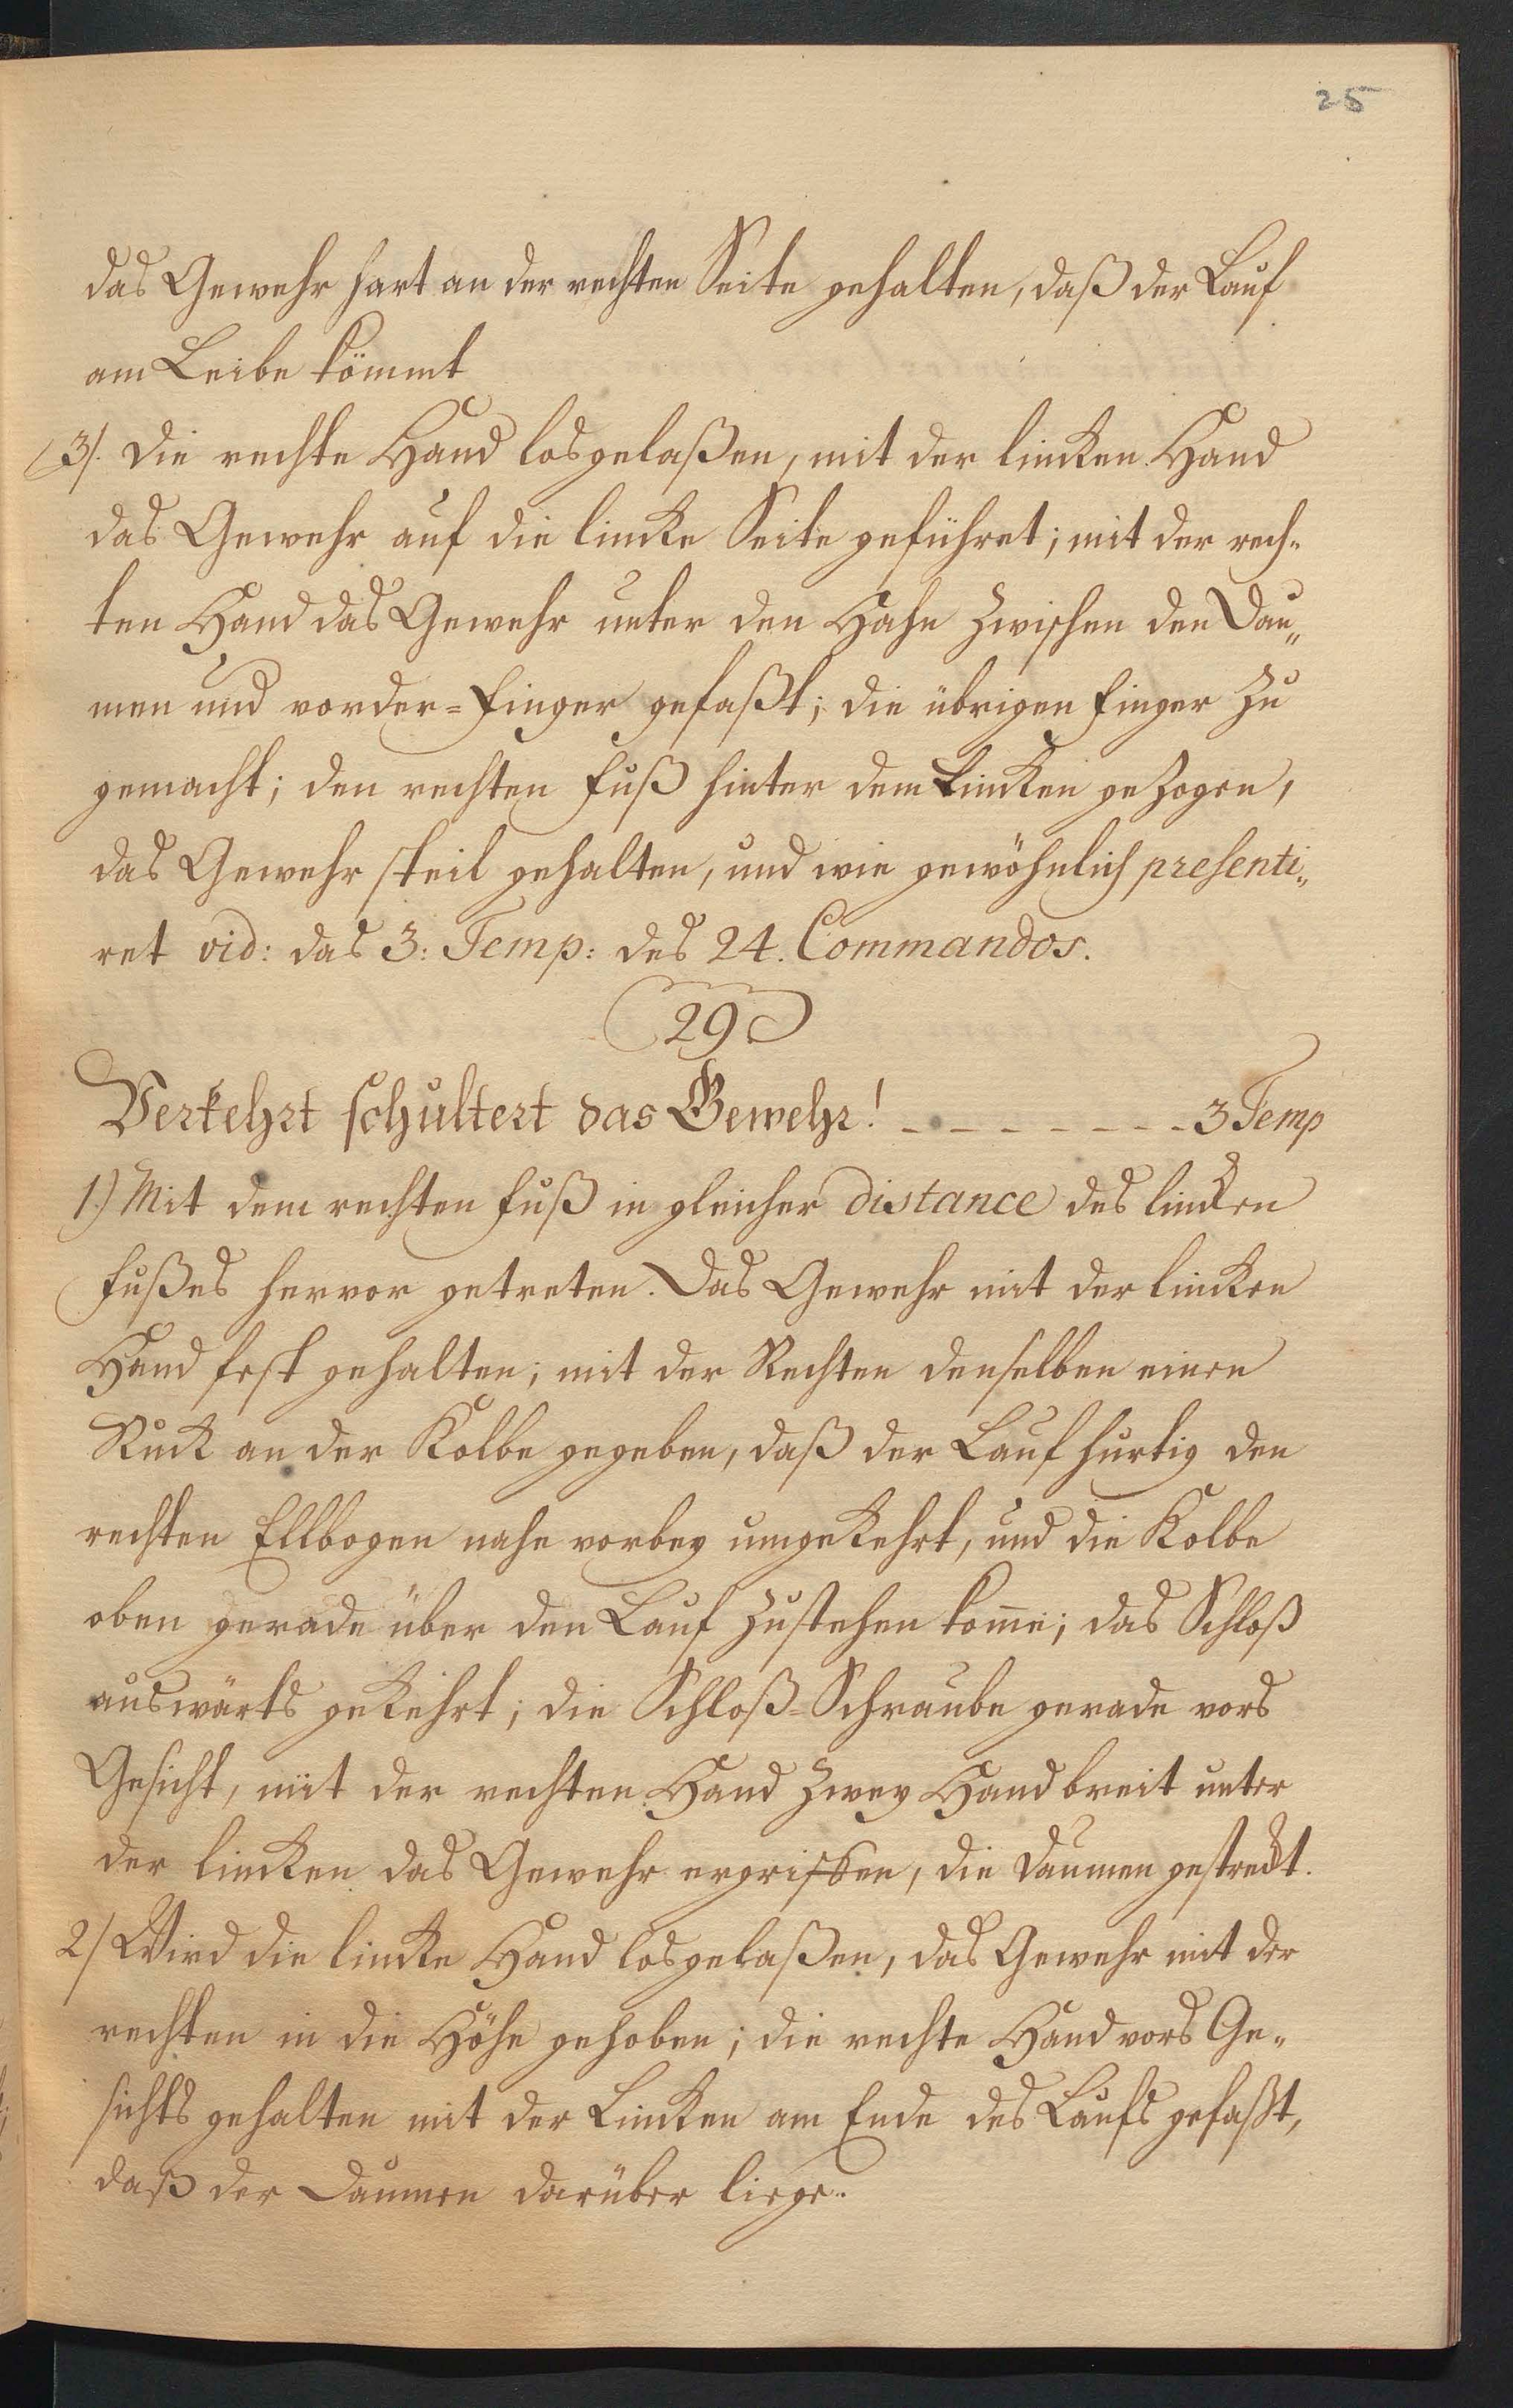 25
das Gewehr hart an der rechten Seite gehalten, daß der Lauf
am Leibe kömmt
3/. Die rechte Hand losgelaßen, mit der lincken Hand
das Gewehr auf die lincke Seite geführet; mit der rech-
ten Hand das Gewehr unter den Hahn zwischen den Dau„
men und vorder=Finger gefaßt; die übrigen Finger zu
gemacht; den rechten Fuß hinter dem Lincken gezogen,
das Gewehr steil gehalten, und wie gewöhnlich presenti„
ret vid: das 3: Temp: des 24. Commandos.
29
Verkehrt schultert das Gewehr! - - - - - - - - 3 Temp
1.) Mit dem rechten Fuß in gleicher distance des lincken
Fußes hervor getreten. Das Gewehr mit der lincken
Hand fest gehalten; mit der Rechten denselben einen
Ruck an der Kolbe gegeben, daß der Lauf hurtig den
rechten Ellbogen nahe vorbey umgekehrt, und die Kolbe
oben gerade über den Lauf zustehen kom̄e; das Schloß
auswärts gekehrt; die Schloß=Schraube gerade vors
Gesicht, mit der rechten Hand zwey Hand breit unter
der lincken das Gewehr ergriffen, die Daumen gestreckt.
2/ Wird die lincke Hand losgelaßen, das Gewehr mit der
rechten in die Höhe gehoben; die rechte Hand vors Ge-
sichts gehalten mit der Lincken am Ende des Laufs gefaßt,
daß der Daumen darüber liege.